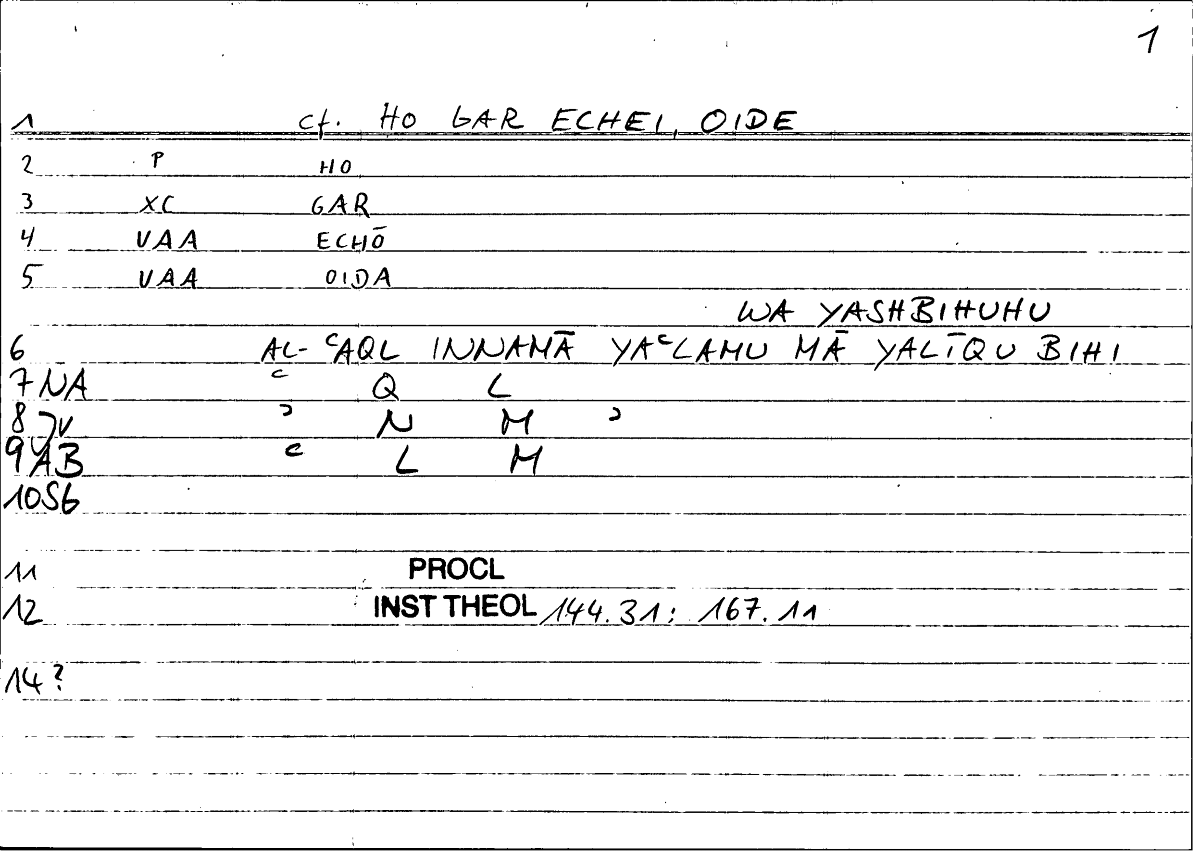 1
1 cf. HO GAR ECHEI, OIDE
2 P HO
3 XC GAR
4 VAA ECHŌ
5 VAA OIDA
WA YASHBIHUHU
6 AL-ʿAQL INNAMĀ YAʿLAMU MĀ YALĪQU BIHI
7 NA ʿ Q L
8 JV ʾ N M ʾ
9 AB ʿ L M
10 SG
11 PROCL
12 INST THEOL 144.31: 167.11
14 ?